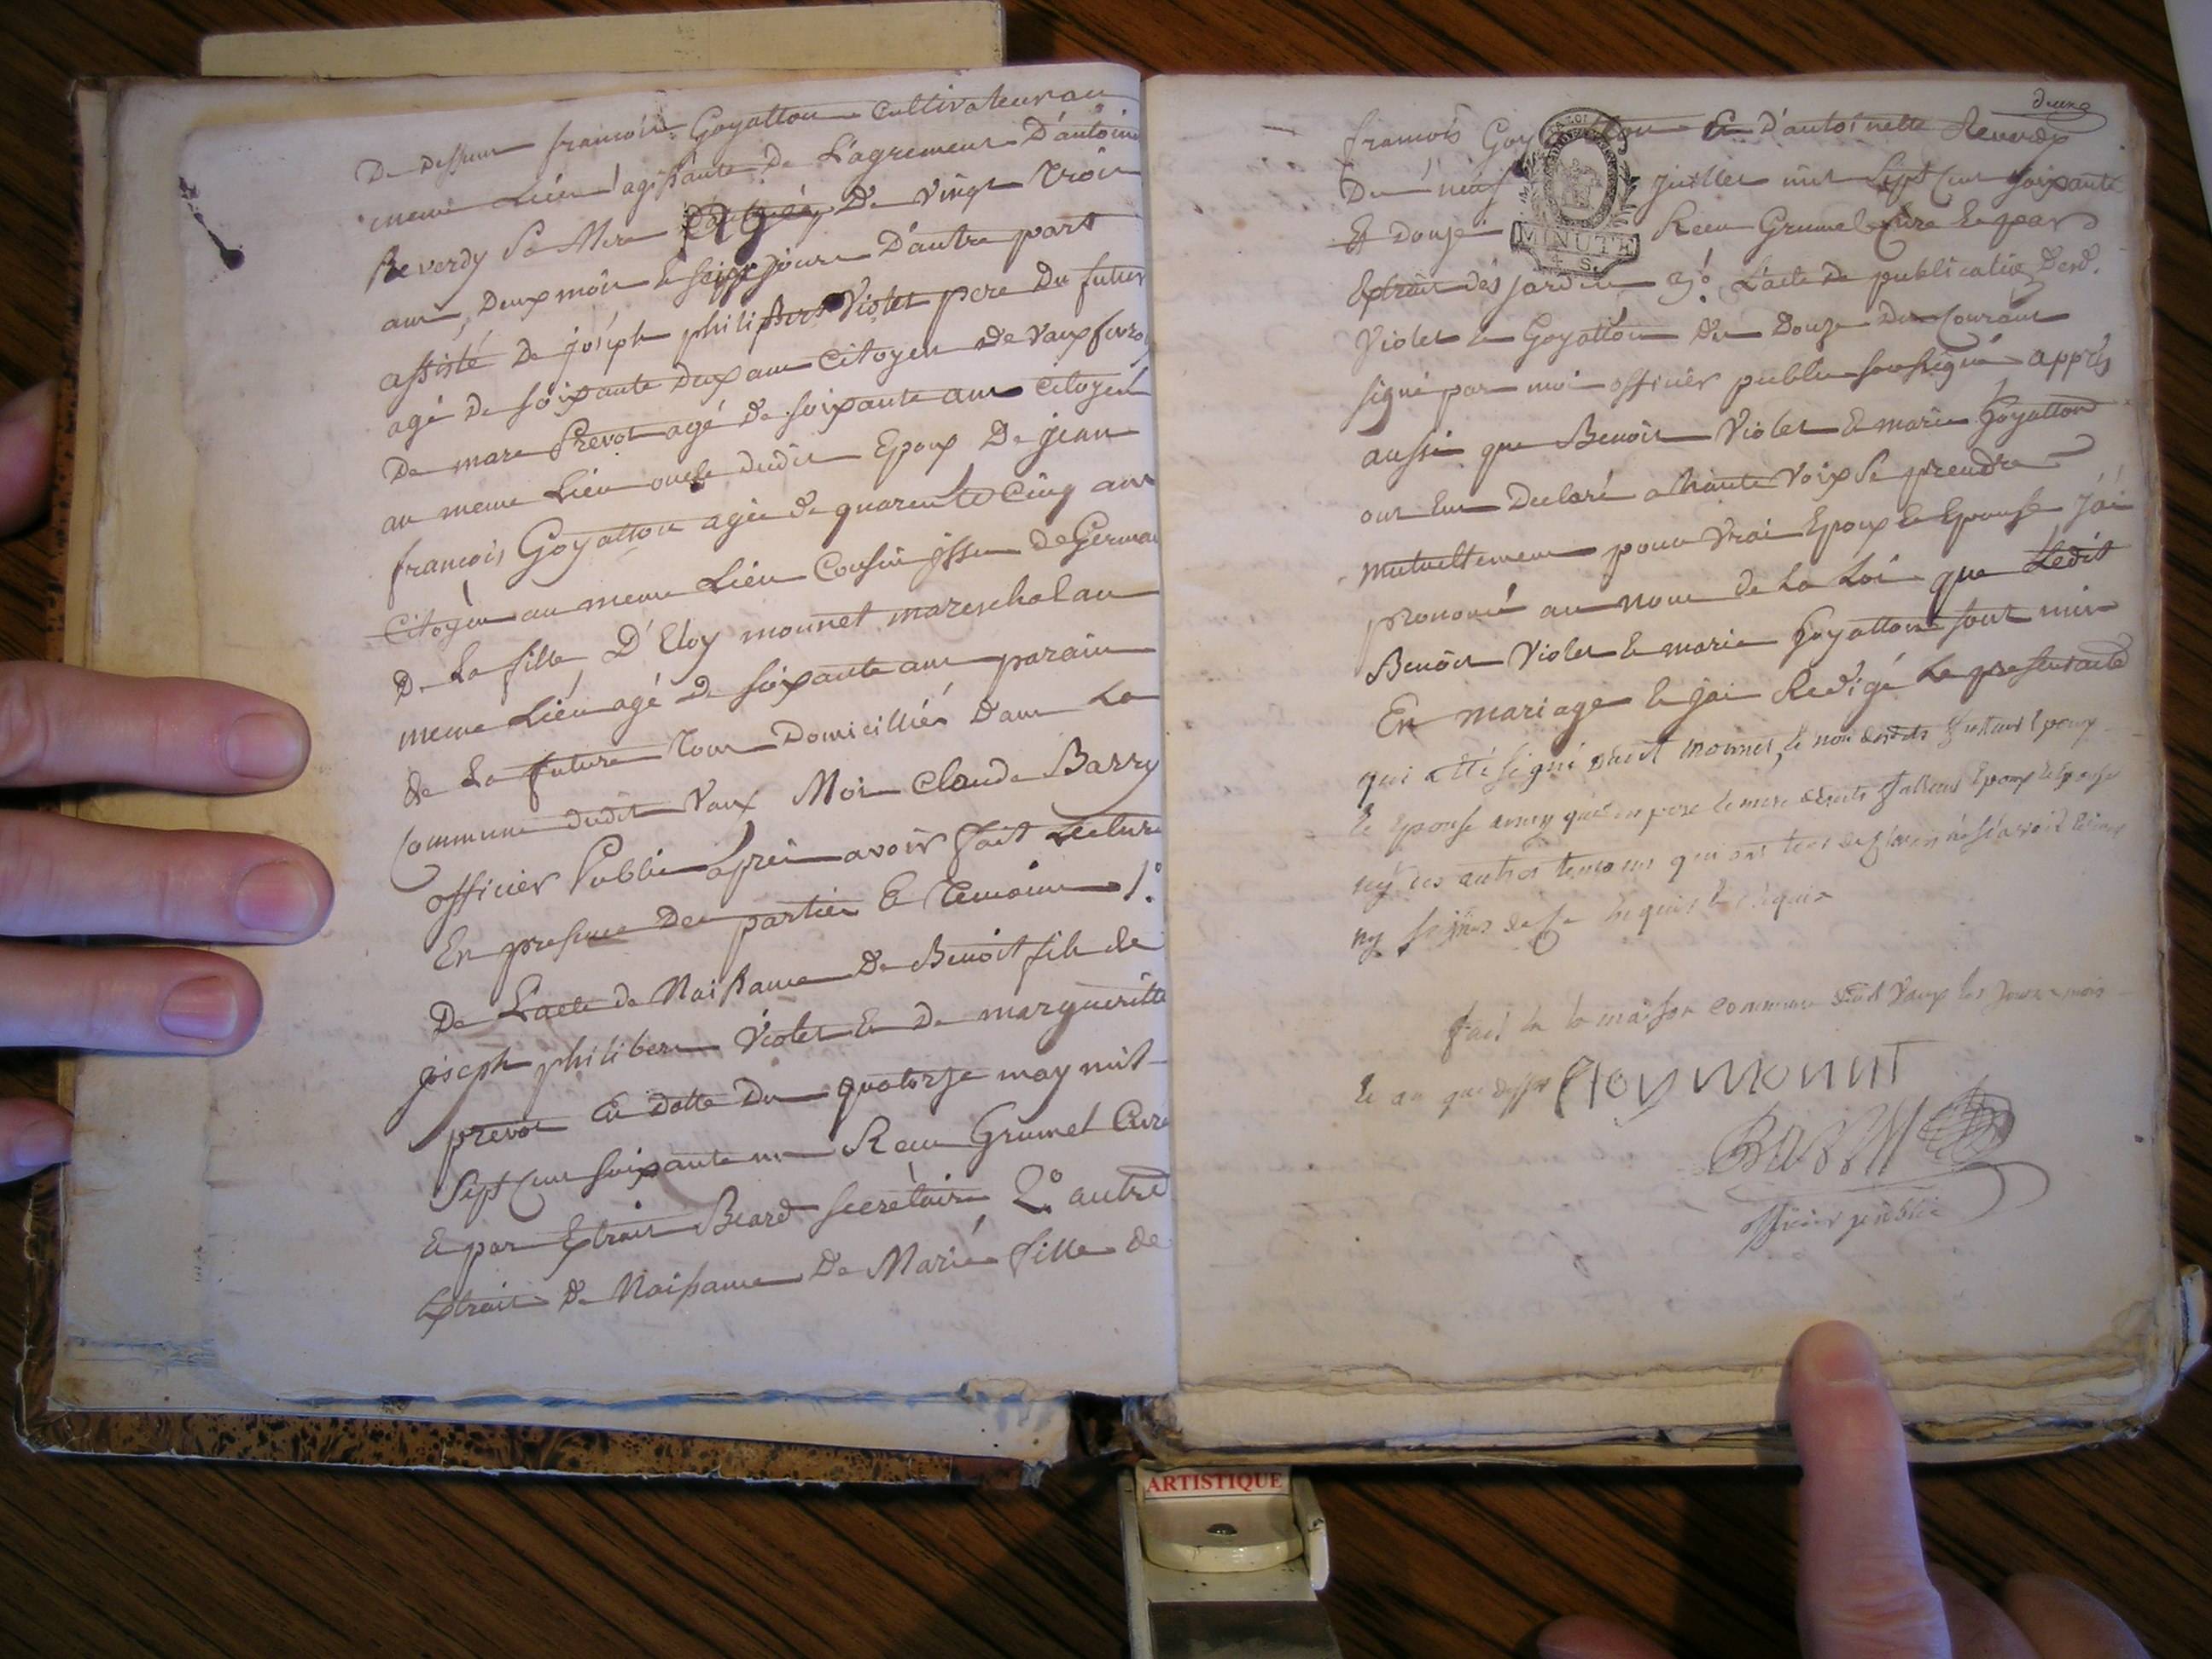 De Dessunt francois Goyatton cultivateur au
meme Lieu agissante De L'agrement D'antoine
Reverdy Sa Mere agée De vingt Trois
ans, Deux mois & seize jours D'autre part
assisté De joseph philibert Violet pere Du futur
agé de soixante deux ans citoyen de Vaux
De marc Prevot agé de soixante ans citoyen
au meme Lieu oncle dudit Epoux De jean
francois Goyatton agée de quarente Cinq ans
Citoyen au meme Lieu Cousin issu de Germai
De La fille D'Eloy monnet mareschal au
meme Lieu agé De soixante ans parain
de La future Tous Domicilliés Dans La
Commune dudit Vaux Moi Claude Barry
officier Public aprés avoir fait Lecture
En presence Des partiés & Temoins 1.°
De L'acte de Naissance De Benoit fils de
joseph philibert Violet & De margueritte
prevot en datte Du quatorze may mil
Sept Cent soixante un Recu Grumel Curé
& par Extrait Beard secretaire 2.° autre
Extrait de Naissance De Marie fille de
deuxe
francois Goyatton & D'antoinette Reverdy
Du neuf juillet mil Sept Cent soixante
Et Douze Recu Grumel Cure & par
Extrait des jardin 3.° L'acte de publication Desd.
Violet & Goyatton du Douze Du Courant
signé par moi officier public soussigné apprés
aussi que Benoit Violet & marie Goyatton
ont Eut Declaré a haute Voix Se prendre
mutuellement pour Vrai Epoux & Epouse j'ai
prononcé au nom de La Loi que Ledit
Benoit Violet & marie Goyatton sont unis
En mariage & jai Redigé Le present acte
qui a été signé dudit monnet, & non desdits futturs Epoux
& Epouse
ny des autres temoins qui ont tous
ny signer de ce Enquis & requis
fait En la maison commune dudit Vaux les jours mois
& an que dessus Eloy monnet
Barry
officier public
MINUTE
ARTISTIQUE